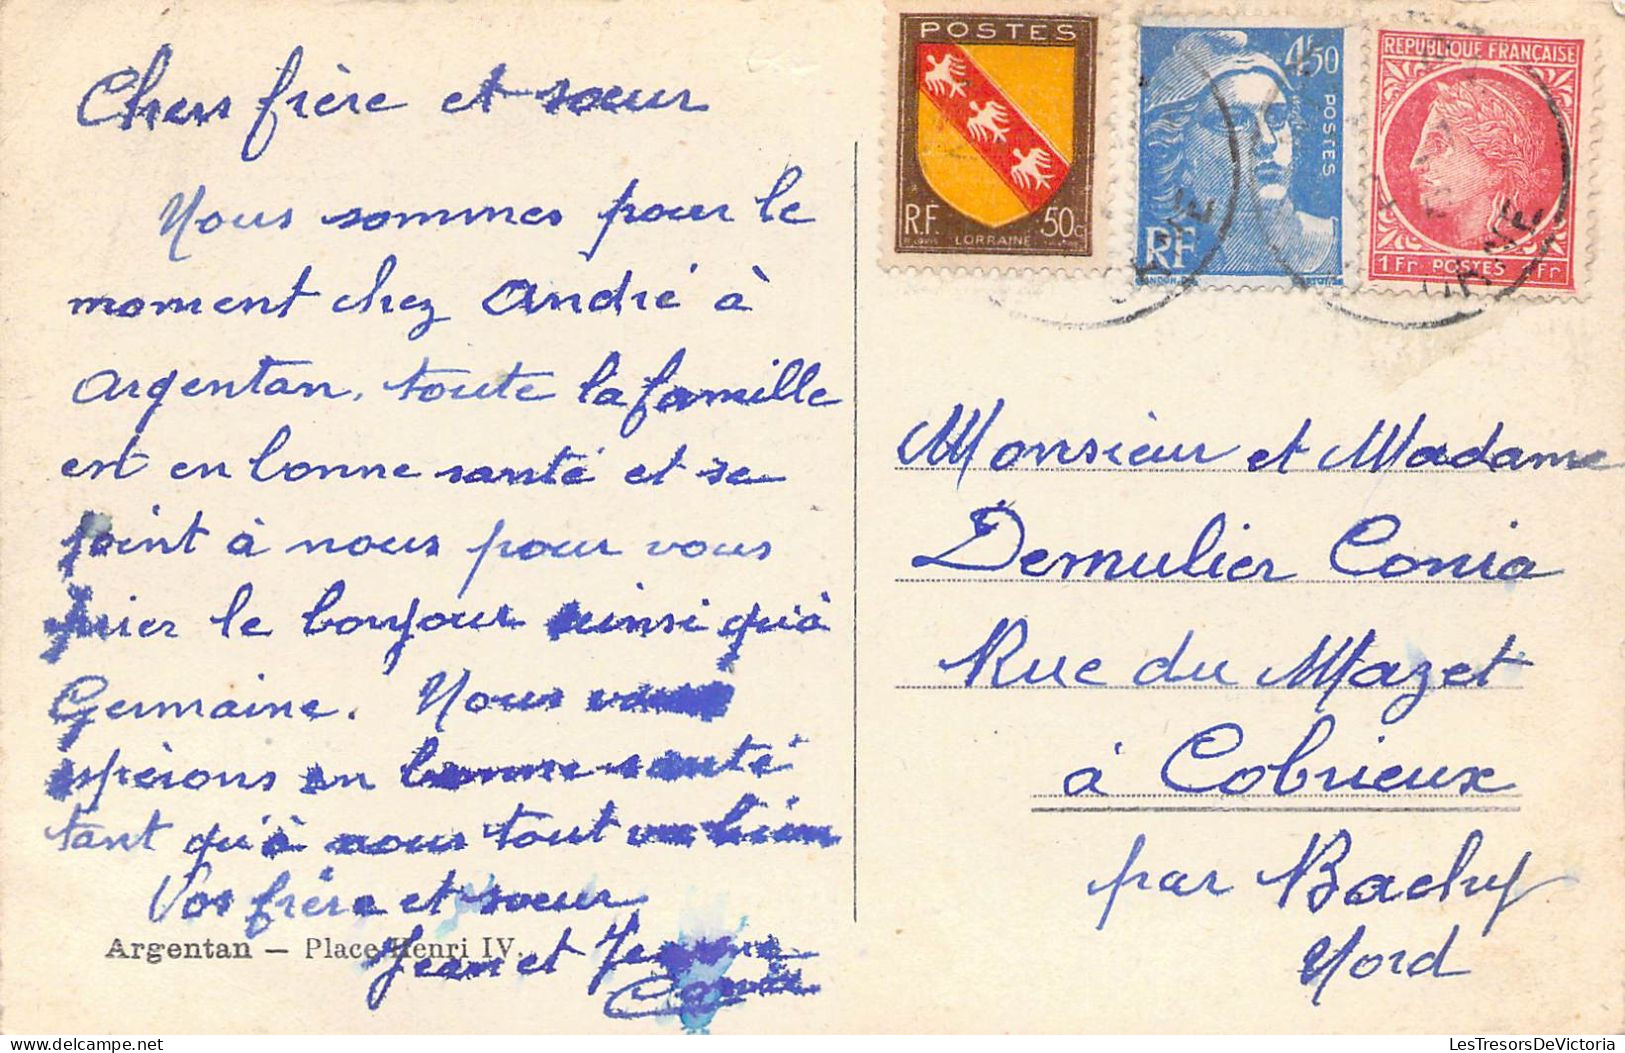 Chers frère et sœur
Nous sommes pour le
moment chez André à
Argentan, toute la famille
est en bonne santé et se
joint à nous pour vous
le bonjour ainsi qu'à
Germaine. Nous vous
espérons en bonne santé
tant qu'à nous tout va bien
Vos frère et sœur
Jean et
Argentan — Place Henri IV.
POSTES
R.F. 50c
LORRAINE
4F50
POSTES
RF
REPUBLIQUE FRANÇAISE
1Fr POSTES 1Fr
ORNE
Monsieur et Madame
Demulier Conia
Rue du Mazet
à Cobrieux
par Bachy
Nord
LesTresorsDeVictoria